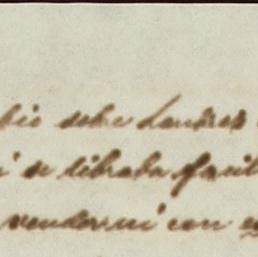 bio sobre Londres
i se libraba facil
vender ni con e